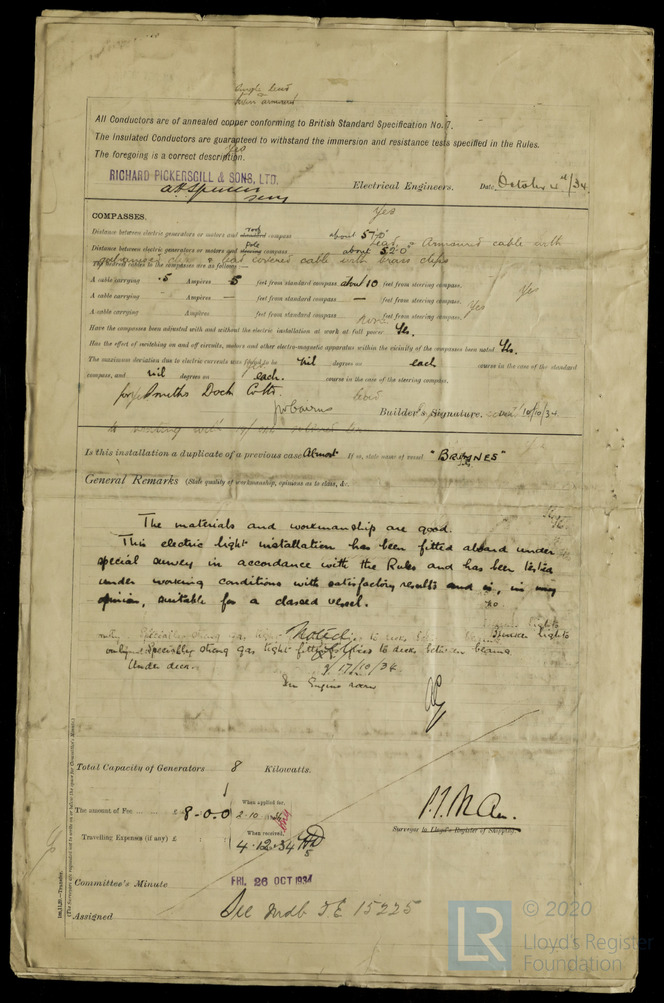 Single lead
All Conductors are of annealed copper conforming to British Standard Specification No. 7.
The Insulated Conductors are guaranteed to withstand the immersion and resistance tests specified in the Rules.
Yes
The foregoing is a correct description.
RICHARD PICKERSGILL & SONS, LTD.
Electrical Engineers. Date October /34.
COMPASSES.
Yes
Distance between electric generators or motors and standard compass about 57'0"
Distance between electric generators or motors and steering compass about 52'0"
Lead & Armoured cable with
The nearest cables to the compasses are as follows:—
lead covered cable with brass clips
A cable carrying .5 Ampères 8 feet from standard compass about 10 feet from steering compass.
Yes
A cable carrying – Ampères – feet from standard compass – feet from steering compass.
Yes
A cable carrying Ampères feet from standard compass feet from steering compass.
none
Have the compasses been adjusted with and without the electric installation at work at full power Yes.
Has the effect of switching on and off circuits, motors and other electro-magnetic apparatus within the vicinity of the compasses been noted Yes.
The maximum deviation due to electric currents was found to be nil degrees on each course in the case of the standard
compass, and nil degrees on each. course in the case of the steering compass.
Smiths Dock Co Ltd.
Builder's Signature. Date 10/10/34
Is this installation a duplicate of a previous case Almost If so, state name of vessel "BRAGNES"
General Remarks (State quality of workmanship, opinions as to class, &c.
The materials and workmanship are good.
This electric light installation has been fitted aboard under
special survey in accordance with the Rules and has been tested
under working conditions with satisfactory results and is, in my
opinion, suitable for a classed vessel.
no
Noted
Specially strong gas tight to deck between beams
Under deck.
17/10/34.
In Engine room
Total Capacity of Generators 8 Kilowatts.
The amount of Fee £ 8-0.0 When applied for, 2.10
Travelling Expenses (if any) £ When received, 4.12.34
Surveyor to Lloyd's Register of Shipping.
Committee's Minute FRI. 26 OCT 1934
Assigned See Mdb. J.E 15225
(The Surveyors are requested not to write on or below the space for Committee's Minute.)
LR
© 2020
Lloyd's Register
Foundation